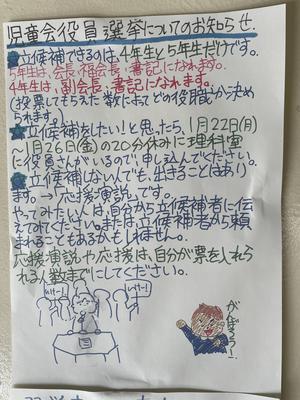 児童会役員選挙についてのお知らせ
★立候補できるのは、4年生と5年生だけです。
5年生は、会長・福会長・書記になれます。
4年生は、副会長・書記になれます。
(投票してもらえた数によってどの役職か決め
られます。)
★立候補をしたい!と思ったら、1月22日(月)
~1月26日(金)の20分休みに理科室
に役員さんがいるので、申し込んでください。
★立候補しない人でも、出きることはあり
ます。→「応援演説」です。
やってみたい人は、自分から立候補者に伝
えてみてください。または、立候補者から頼
まれることもあるかもしれません。
応援演説や応援は、自分が票を入れら
れる人数までにしてください。
がんばろうー!